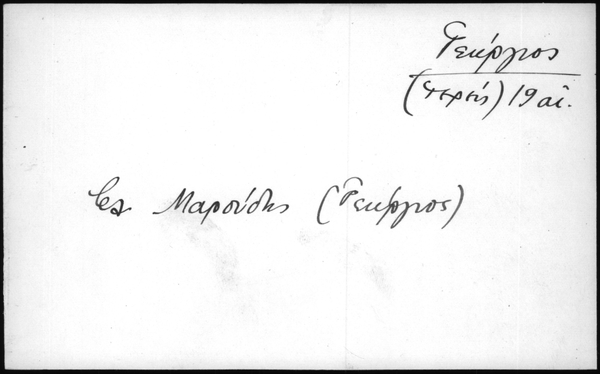 Γεώργιος
(ιερεύς) 19 αἰ.
βλ Μαρούδης (Γεώργιος)